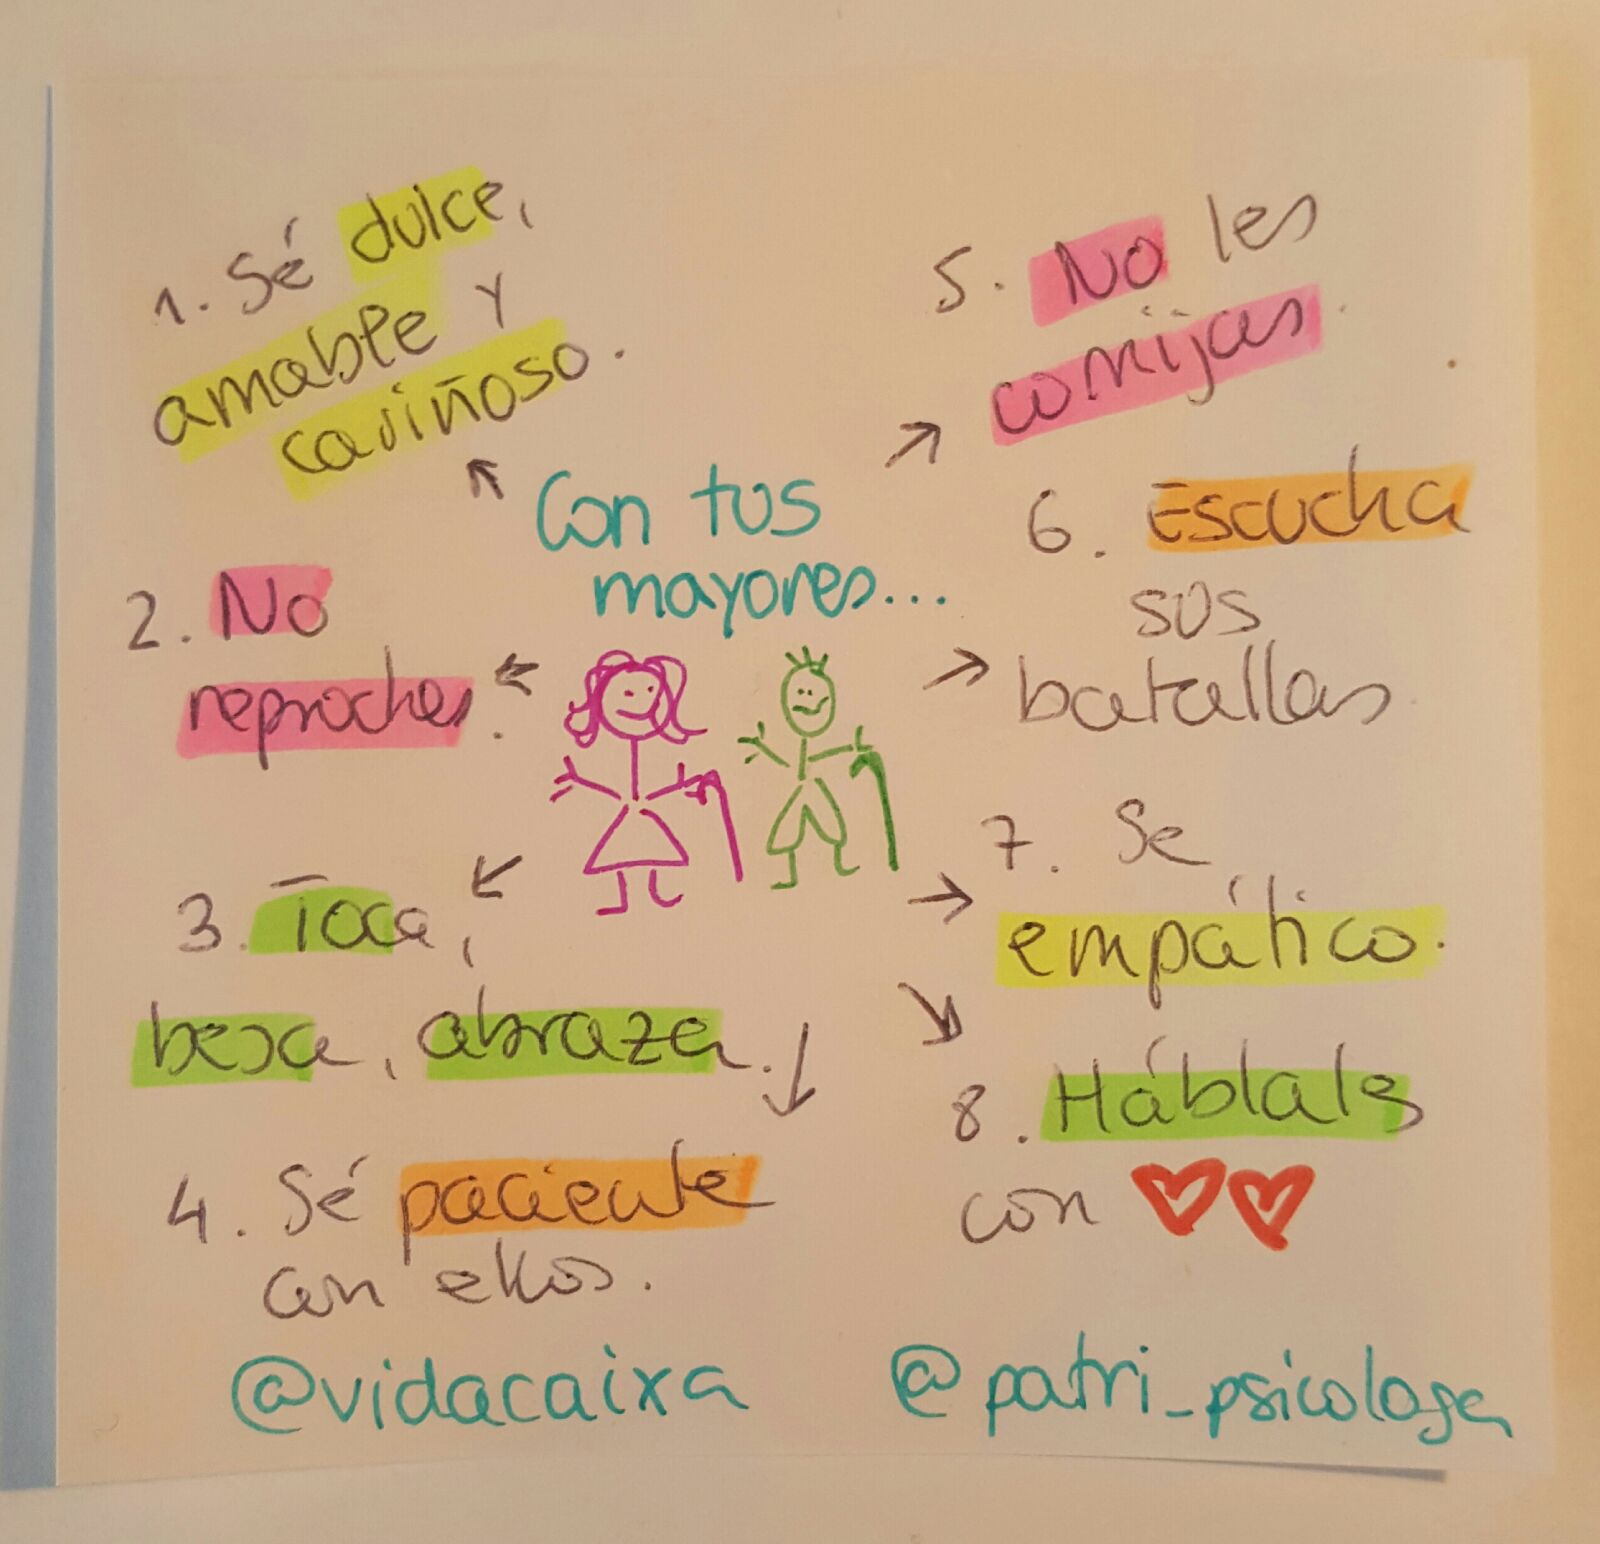 Con tus
mayores...
1. Sé dulce,
amable y
cariñoso.
2. No
reproches.
3. Toca,
besa, abraza.
4. Sé paciente
con ellos.
5. No les
corrijas.
6. Escucha
sus
batallas
7. Se
empático.
8. Háblales
con
@vidacaixa
@patri_psicologa